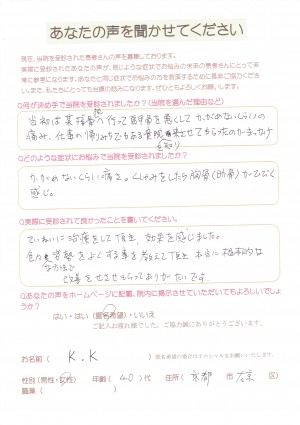 あなたの声を聞かせてください
現在、当院を受診された患者さんの声を募集しております。
実際に受診されたあなたの声が、同じような症状でお悩みの未来の患者さんにとって非
常に参考になります。あなたと同じ症状でお悩みの方を救済するために是非ご協力くださ
い。また、私たちにとっても当価の励みになります。ぜひともよろしくお願いします。
Q何が決め手で当院を受診されましたか？(当院を選んだ理由など)
他
行って 腰を悪くして かがめないくらいの
痛み、仕事の帰りみちでもある 来させてもらったのがきっかけ
Qどのような症状にお悩みで当院を受診されましたか？
かがめないくらい痛さ。くしゃみをしたら胸骨(肋骨)がひびく
感じ。
Q実際に受診されて良かったことを書いてください。
ていねいに治療をして頂き、効果を感じました。
色々姿勢をよくする事を考えて頂き 本当に根本的な
な方法で
改善をさせてもらってありがたいです
Qあなたの声をホームページに記載、院内に掲示させていただいてもよろしいでしょ
うか？
はい・はい(匿名希望)・いいえ
ご記入お疲れ様でした。ご協力誠にありがとうございます。
お名前 ( K.K )
匿名希望の場合はイニシャルをお願いいたします。
性別(男性・女性) 年齢( 40 )代 住所( 京都 市 左京 区)
職業( )